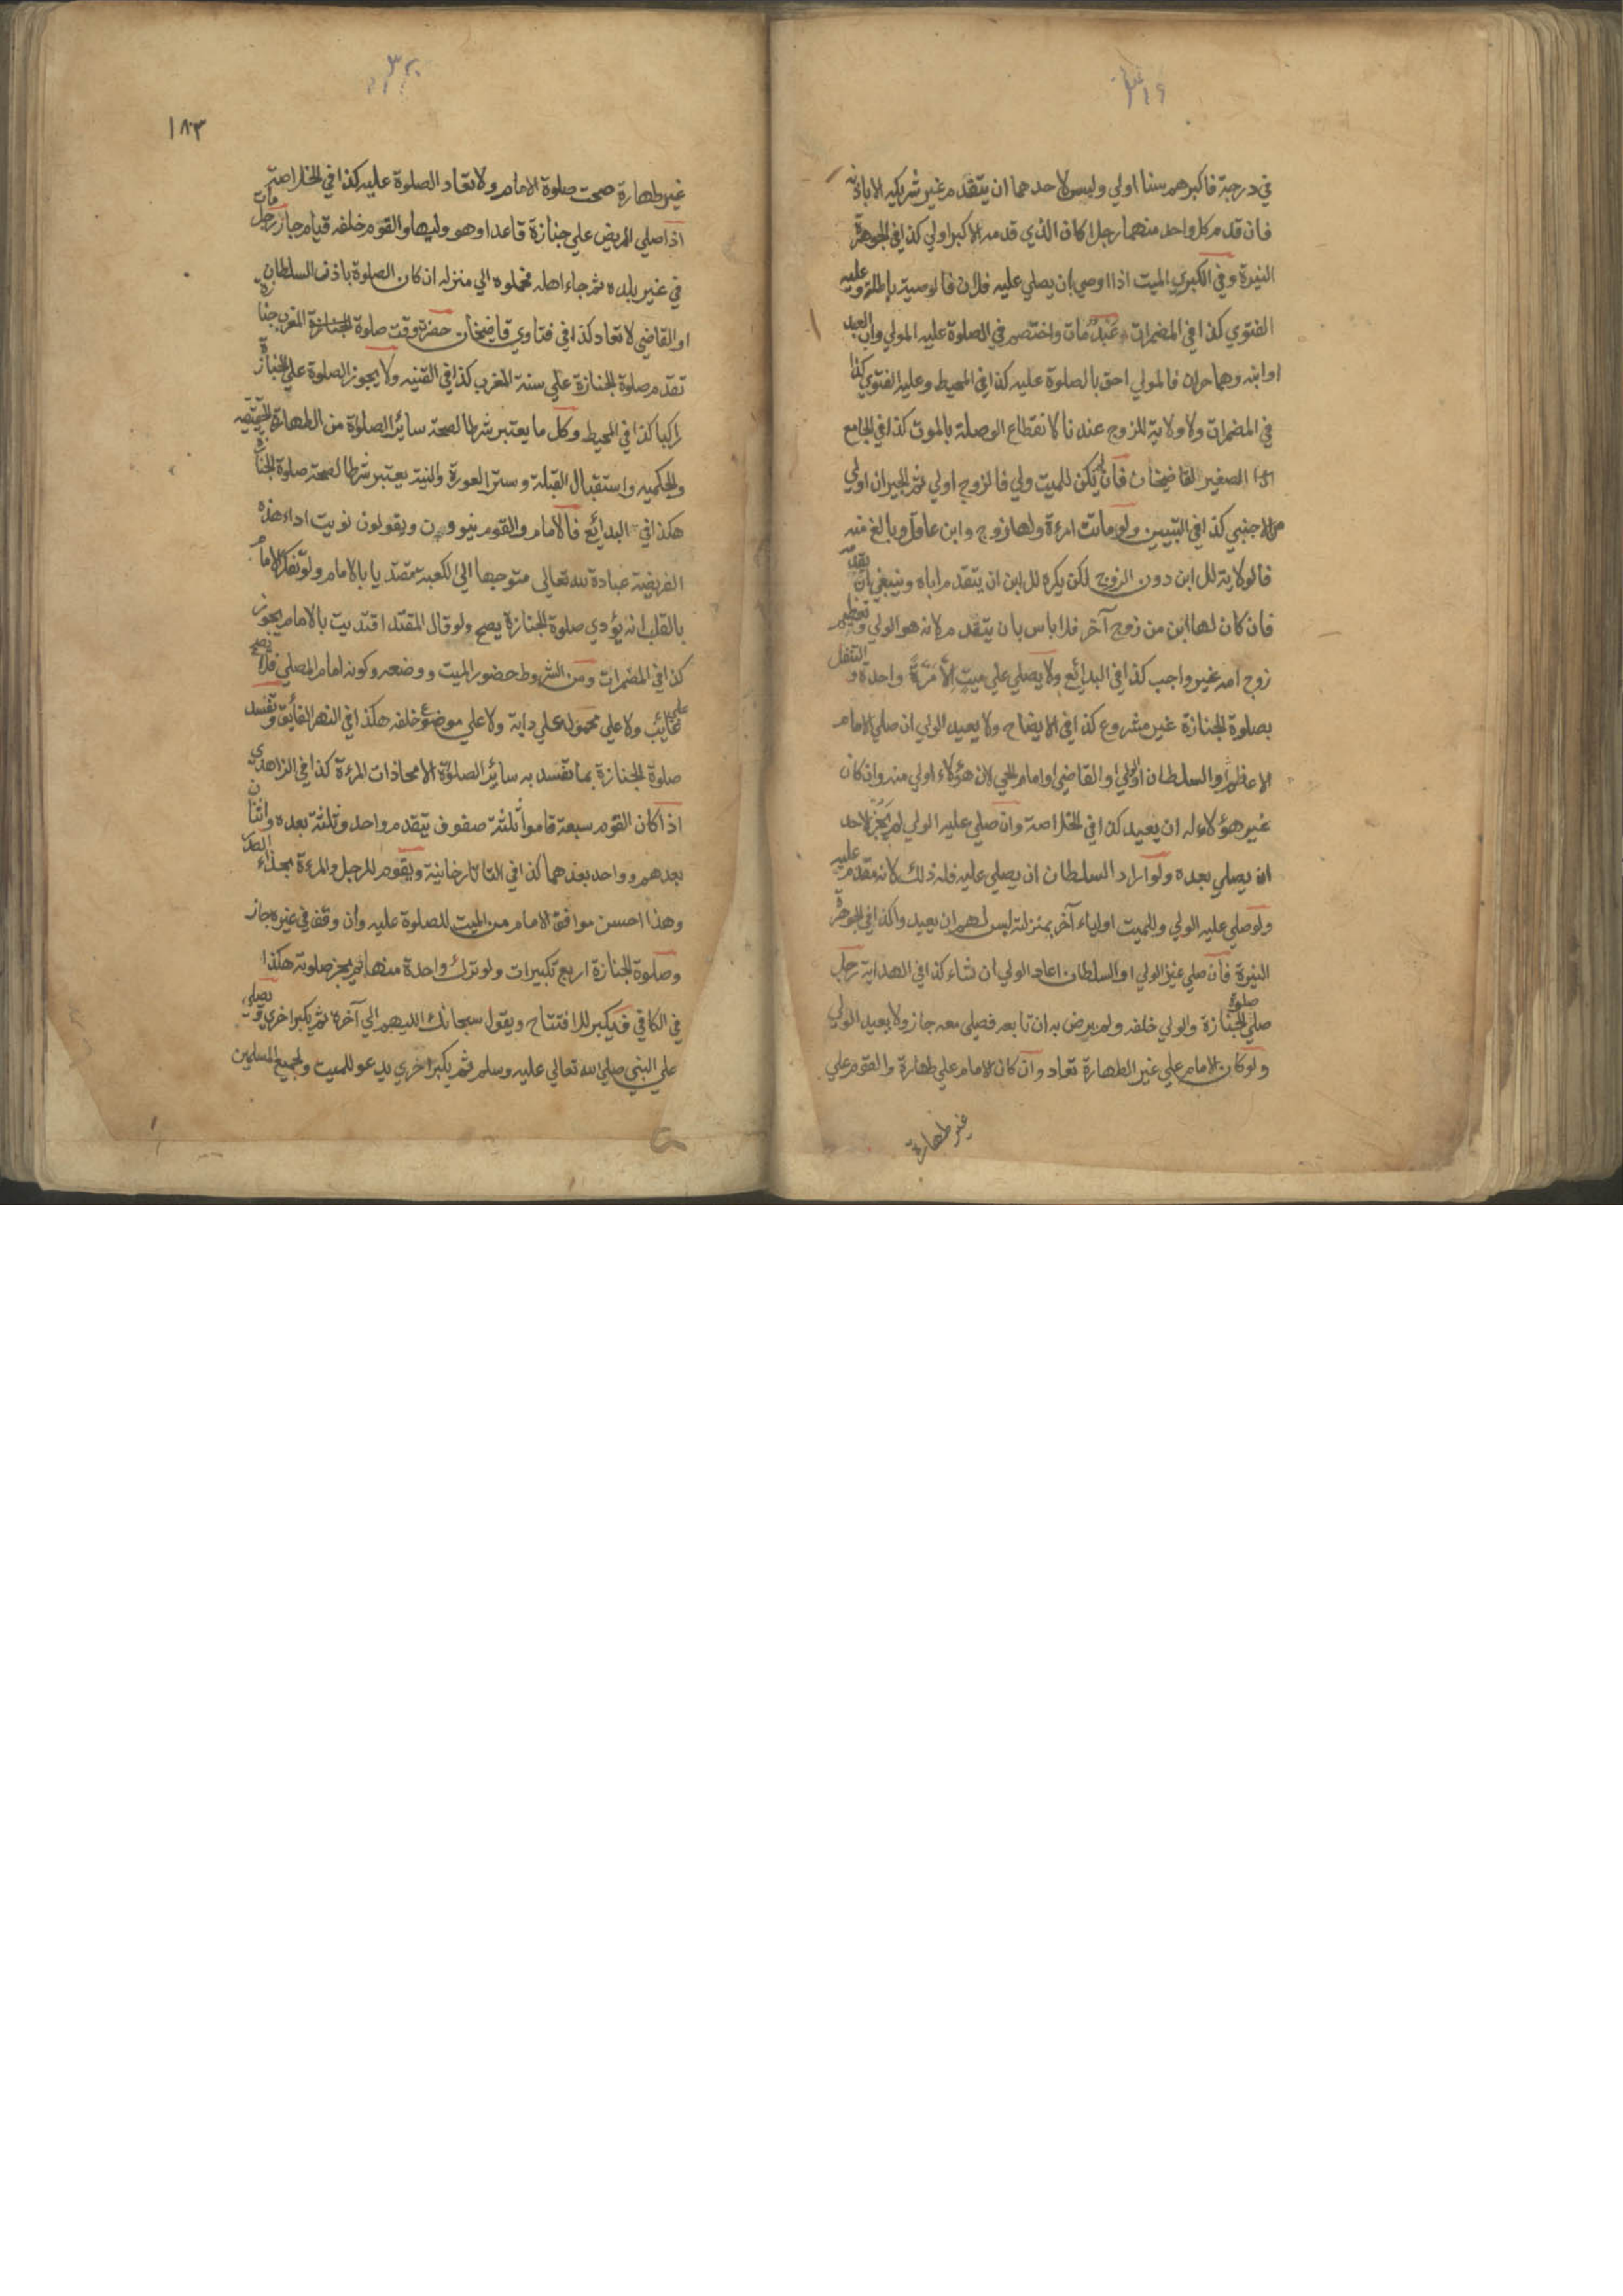 ٣١٩
في درجة فاكبرهم سنا اولي وليس لاحدهما ان يتقدم غير شريكه الا باذنه
فان قدم كل واحد منهما رجلا كان الذي قدمه الاكبر اولي كذا في الجوهرة
النيرة وفي الكبري الميت اذا اوصي بان يصلي عليه فلان فالوصية باطلة وعليه
الفتوي كذا في المضمرات عَبْدٌ مات واختصم في الصلوة عليه المولي واب العبد
او ابنه وهما حران فالمولي احق بالصلوة عليه كذا في المحيط وعليه الفتوي كذا
في المضمرات ولا ولاية للزوج عندنا لانقطاع الوصلة بالموت كذا في الجامع
الصغير لقاضيخان فان لم يكن للميت ولي فالزوج اولي ثم الجيران اولي
من الاجنبي كذا في التبيين ولو ماتت امرءة ولها زوج وابن عاقل وبالغ منه
فالولاية للابن دون الزوج لكن يكره للابن ان يتقدم اباه وينبغي بان يقدمه
فان كان لها ابن من زوج آخر فلا باس بان يتقدم لانه هو الولي وتعظيم
زوج امه غير واجب كذا في البدائع ولا يصلي علي ميت الا مَرَّةً واحدة والتنفل
بصلوة الجنازة غير مشروع كذا في الايضاح ولا يعيد الولي ان صلي الامام
الاعظم او السلطان او الوالي او القاضي او امام الحي لان هؤلاء اولي منه وان كان
غير هؤلاء له ان يعيد كذا في الخلاصة وان صلي عليه الولي لم يَجُزْ لاحد
ان يصلي بعده ولو اراد السلطان ان يصلي عليه فله ذلك لانه مقدم عليه
ولو صلي عليه الولي وللميت اولياء آخر بمنزلته ليس لهم ان يعيدوا كذا في الجوهرة
النيرة فان صلي غير الولي او السلطان اعاد الولي ان شاء كذا في الهداية رجل
صلي صلوة الجنازة والولي خلفه ولم يرض به ان تابعه فصلي معه جاز ولا يعيد الولي
ولو كان الامام علي غير الطهارة تعاد وان كان الامام علي طهارة والقوم علي
غير طهارة
٣٢٠
١٨٣
غير طهارة صحت صلوة الامام ولا تعاد الصلوة عليه كذا في الخلاصة
اذا صلي المريض علي جنازة قاعدا وهو وليها والقوم خلفه قيام جاز رجل مات
في غير بلده ثم جاء اهله فحملوه الي منزله ان كان الصلوة باذن السلطان
او القاضي لا تعاد كذا في فتاوي قاضيخان حضرت وقت صلوة المغرب جنازة
تقدم صلوة الجنازة علي سنة المغرب كذا في القنيه ولا يجوز الصلوة علي الجنازة
راكبا كذا في المحيط وكل ما يعتبر شرطا لصحة سائر الصلوة من الطهارة الحقيقيه
والحكميه واستقبال القبلة وستر العورة والنية يعتبر شرطا لصحة صلوة الجنازة
هكذا في البدائع فالامام والقوم ينوون ويقولون نويت اداء هذه
الفريضة عبادة لله تعالي متوجها الي الكعبة مقتديا بالامام ولو تفكر الامام
بالقلب انه يؤدي صلوة الجنازة يصح ولو قال المقتد اقتديت بالامام يجوز
كذا في المضمرات ومن الشروط حضور الميت ووضعه وكونه امام المصلي فلا تصح
علي غائب ولا علي محمول علي دابة ولا علي موضوع خلفه هكذا في النهر الفايق وتفسد
صلوة الجنازة بما تفسد به سائر الصلوة الا محاذات المرءة كذا في الزاهدي
اذا كان القوم سبعة قاموا ثلثة صفوف يتقدم واحد وثلثة بعده واثنان
بعدهم وواحد بعدهما كذا في التاتارخانية ويقوم للرجل والمرءة بحذاء الصدر
وهذا احسن مواقف الامام من الميت للصلوة عليه وان وقف في غيره جاز
وصلوة الجنازة اربع تكبيرات ولو ترك واحدة منها لم يجز صلوته هكذا
في الكافي فيكبر للافتتاح ويقول سبحانك اللهم الي آخره ثم يكبر اخري ويصلي
علي النبي صلي الله تعالي عليه وسلم ثم يكبر اخري يدعو للميت ولجميع المسلمين